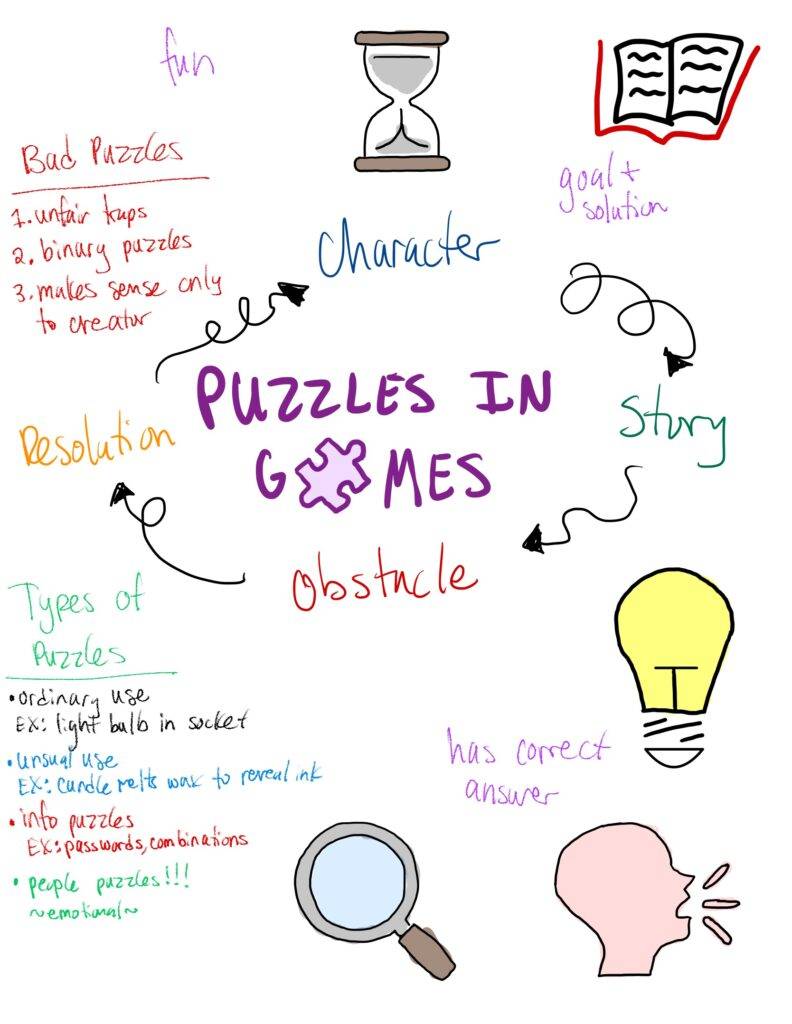 fun
Bad Puzzles
1. unfair traps
2. binary puzzles
3. makes sense only
to creator
goal +
solution
Character
PUZZLES IN
GAMES
Story
Resolution
Obstacle
Types of
Puzzles
• ordinary use
EX: light bulb in socket
• unsual use
EX: candle melts wax to reveal ink
• info puzzles
EX: passwords, combinations
• people puzzles!!!
~emotional~
has correct
answer